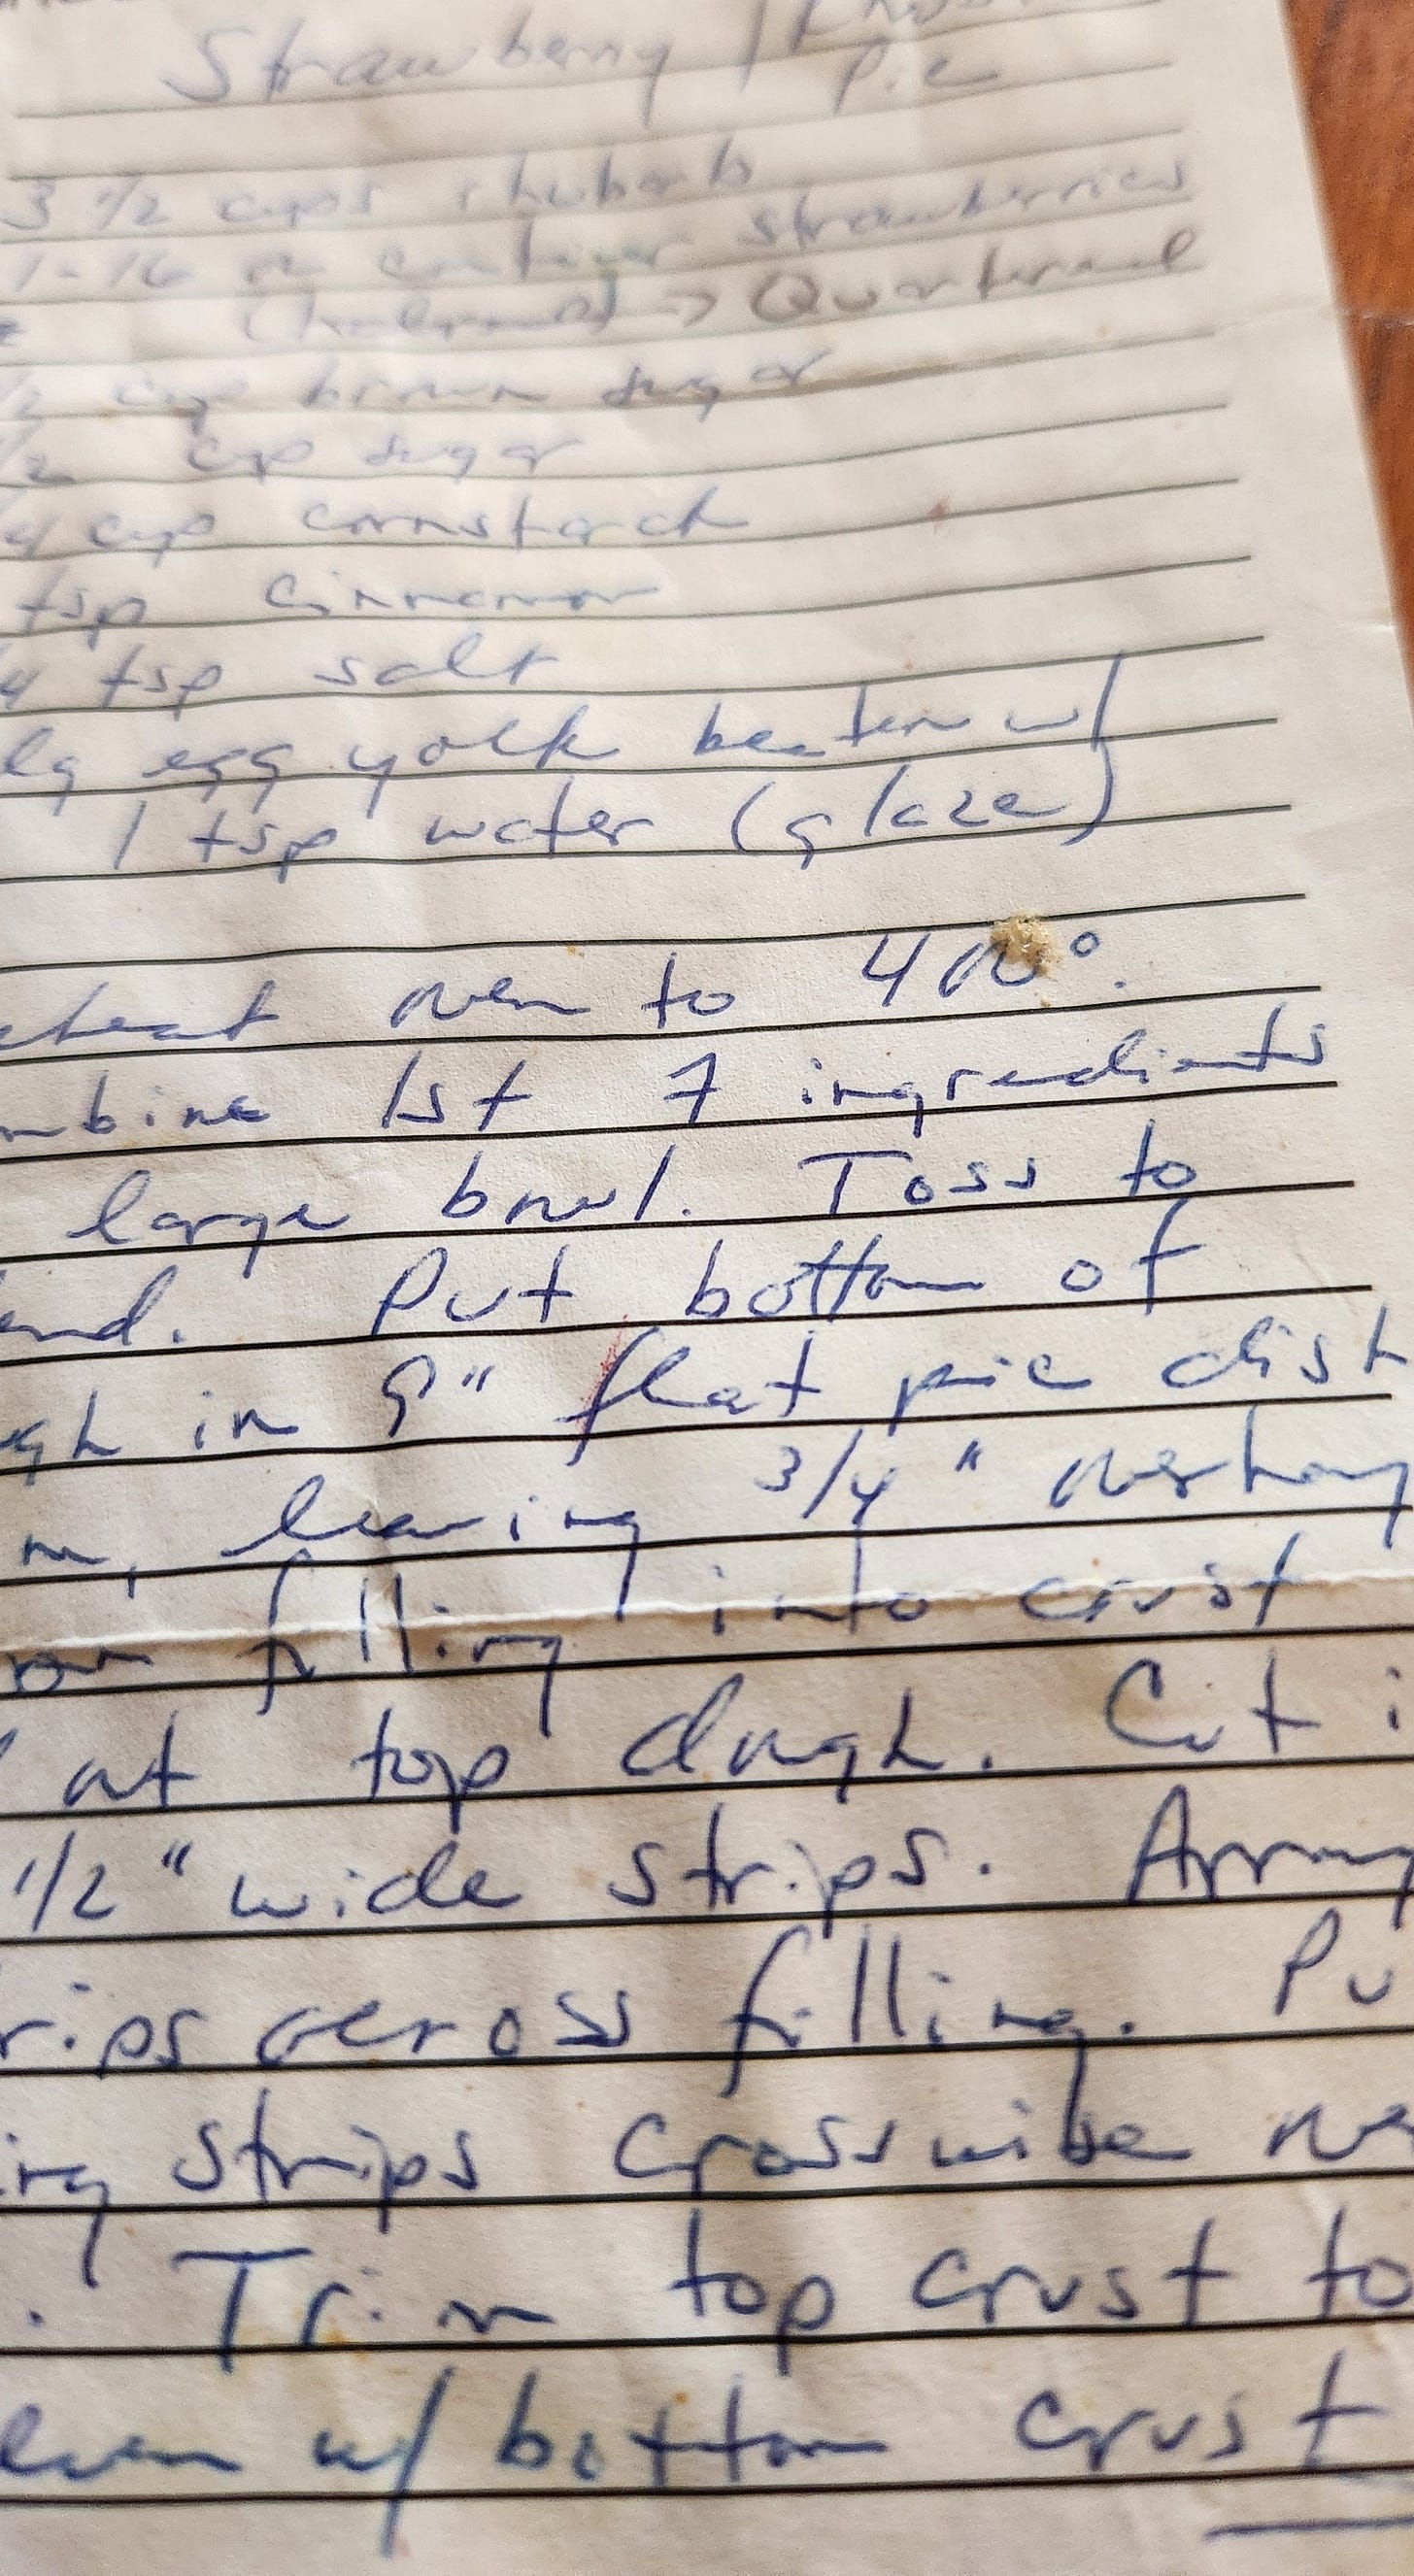 Strawberry /
Pie
3 1/2 cups rhubarb
1-16 oz container strawberries
→ Quartered
1/2 cup brown sugar
1/2 cup sugar
/4 cup cornstarch
tsp cinnamon
/4 tsp salt
lg egg yolk beaten w/
1 tsp water (glaze)
eheat oven to 400°.
mbine 1st 7 ingredients
large bowl. Toss to
end. Put bottom of
gh in 9" flat pie dish
leaving 3/4" overhang
filling into crust
out top dough. Cut i
1/2" wide strips. Arrang
rips across filling. Pu
ing strips crosswise ove
. Trim top crust to
even w/ bottom crust